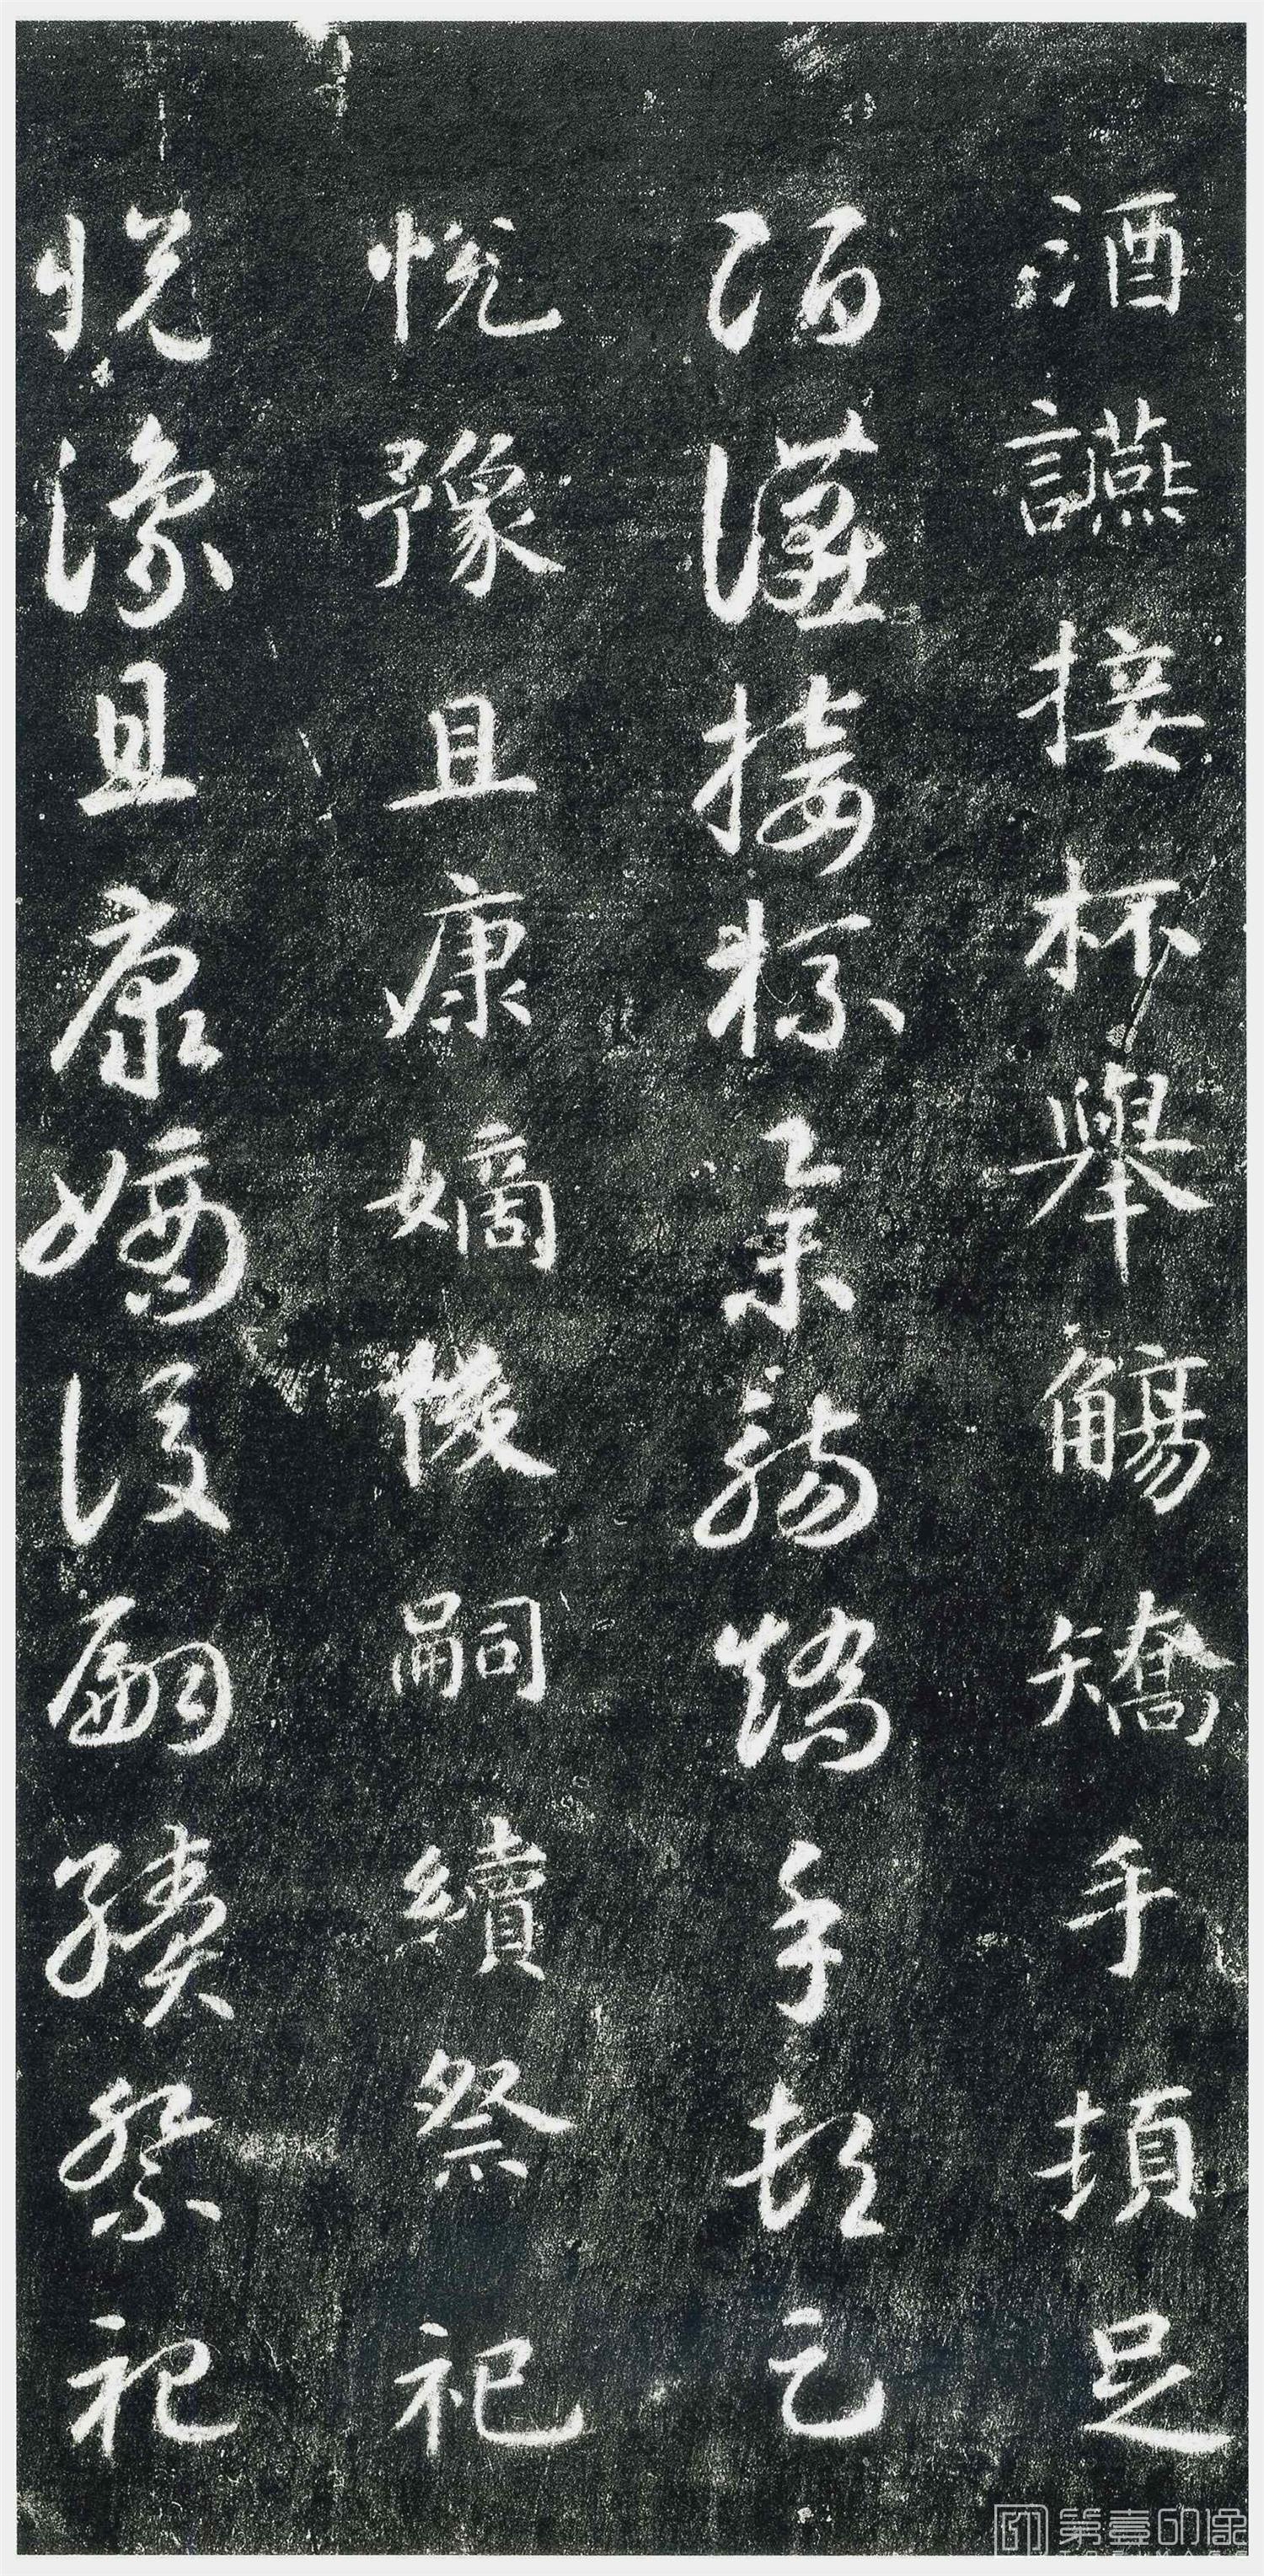 酒讌接杯舉觴矯手頓足
酒讌接杯舉觴矯手頓足
悅豫且康嫡後嗣續祭祀
悅豫且康嫡後嗣續祭祀
第壹印像